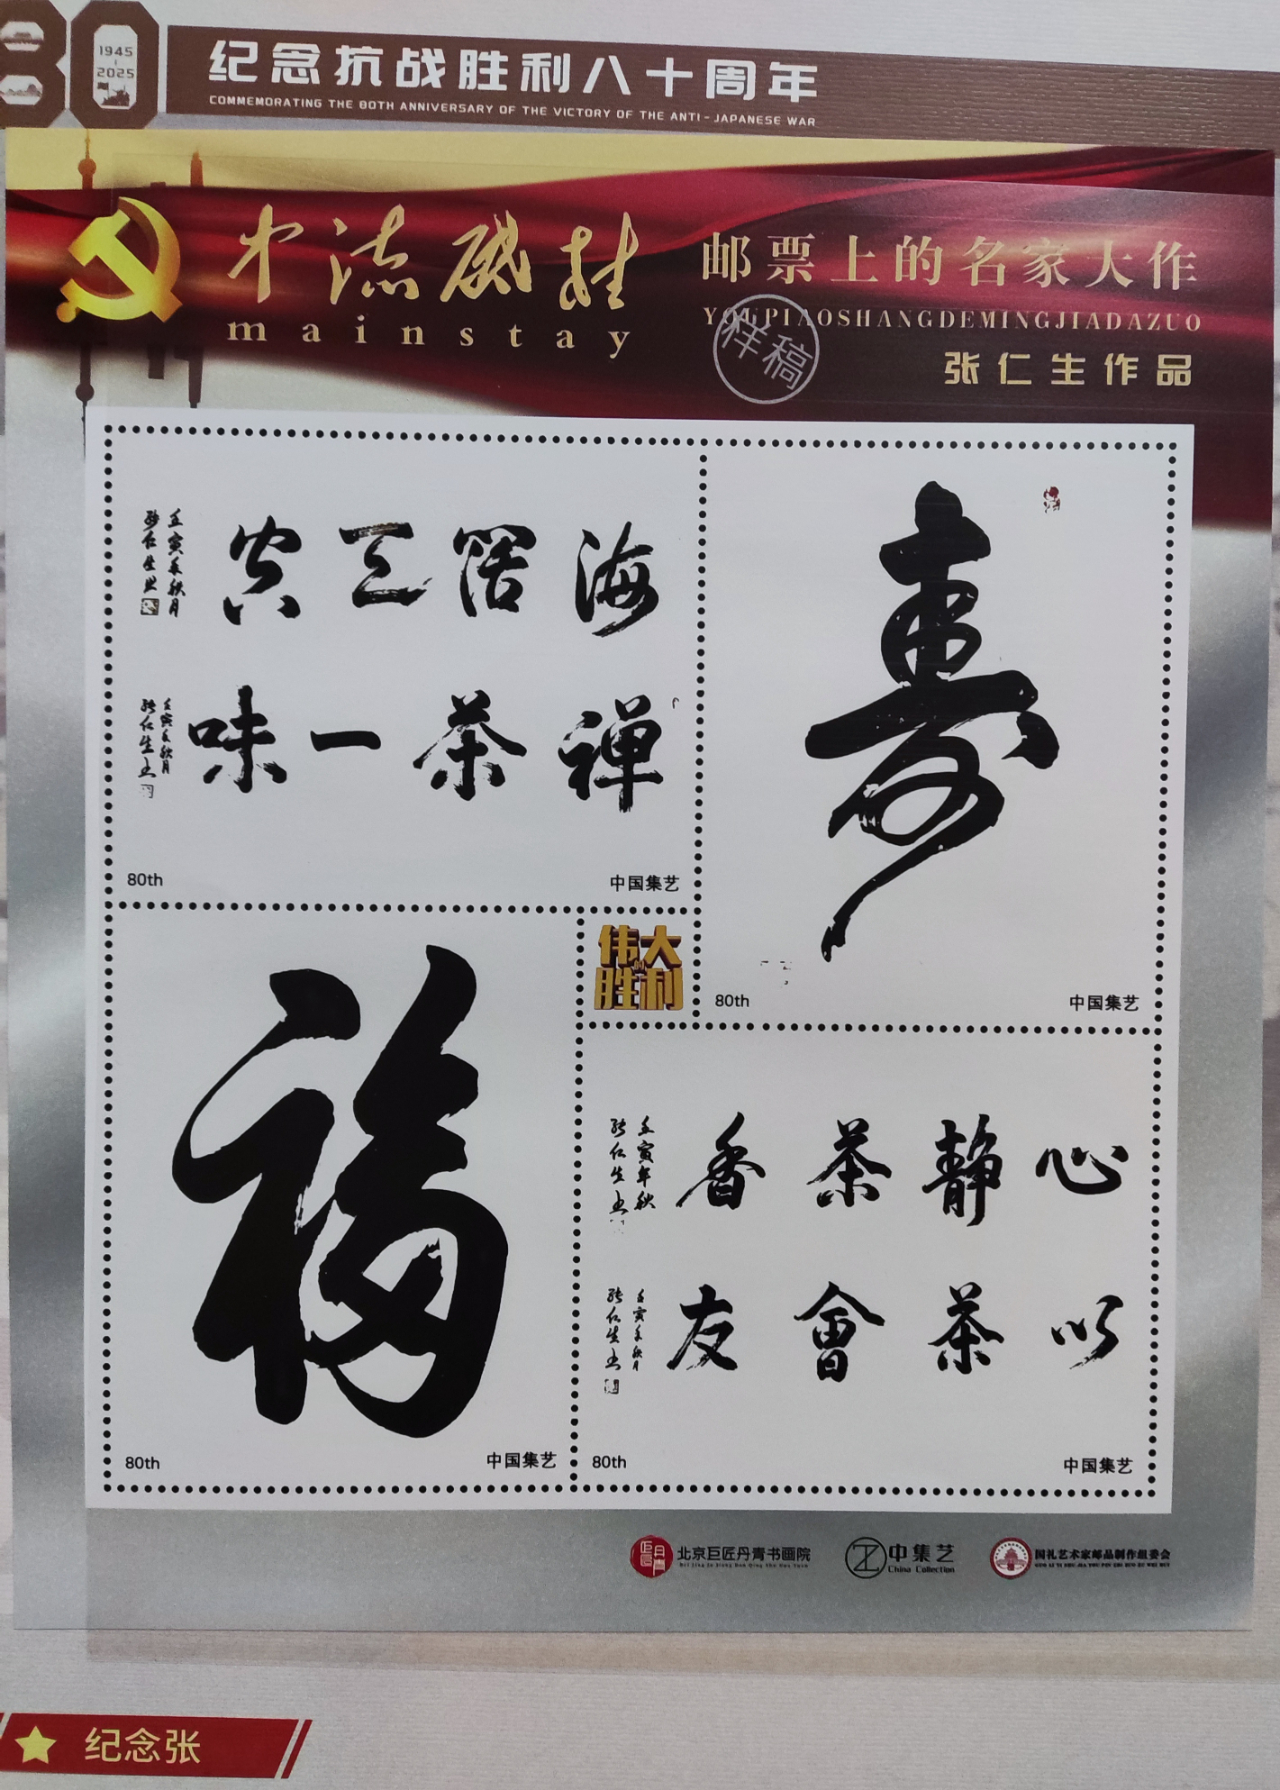 80
1945
2025
纪念抗战胜利八十周年
COMMEMORATING THE 80TH ANNIVERSARY OF THE VICTORY OF THE ANTI-JAPANESE WAR
中流砥柱
mainstay
邮票上的名家大作
YOUPIAOSHANGDEMINGJIADAZUO
样稿
张仁生作品
海阔天空
壬寅年秋月
张仁生书
禅茶一味
壬寅年秋月
张仁生书
80th
中国集艺
寿
80th
中国集艺
福
80th
中国集艺
伟大的胜利
心静茶香
壬寅年秋
张仁生书
以茶會友
壬寅年秋月
张仁生书
80th
中国集艺
巨匠丹青
北京巨匠丹青书画院
中集艺
China Collection
国礼艺术家邮品制作组委会
纪念张